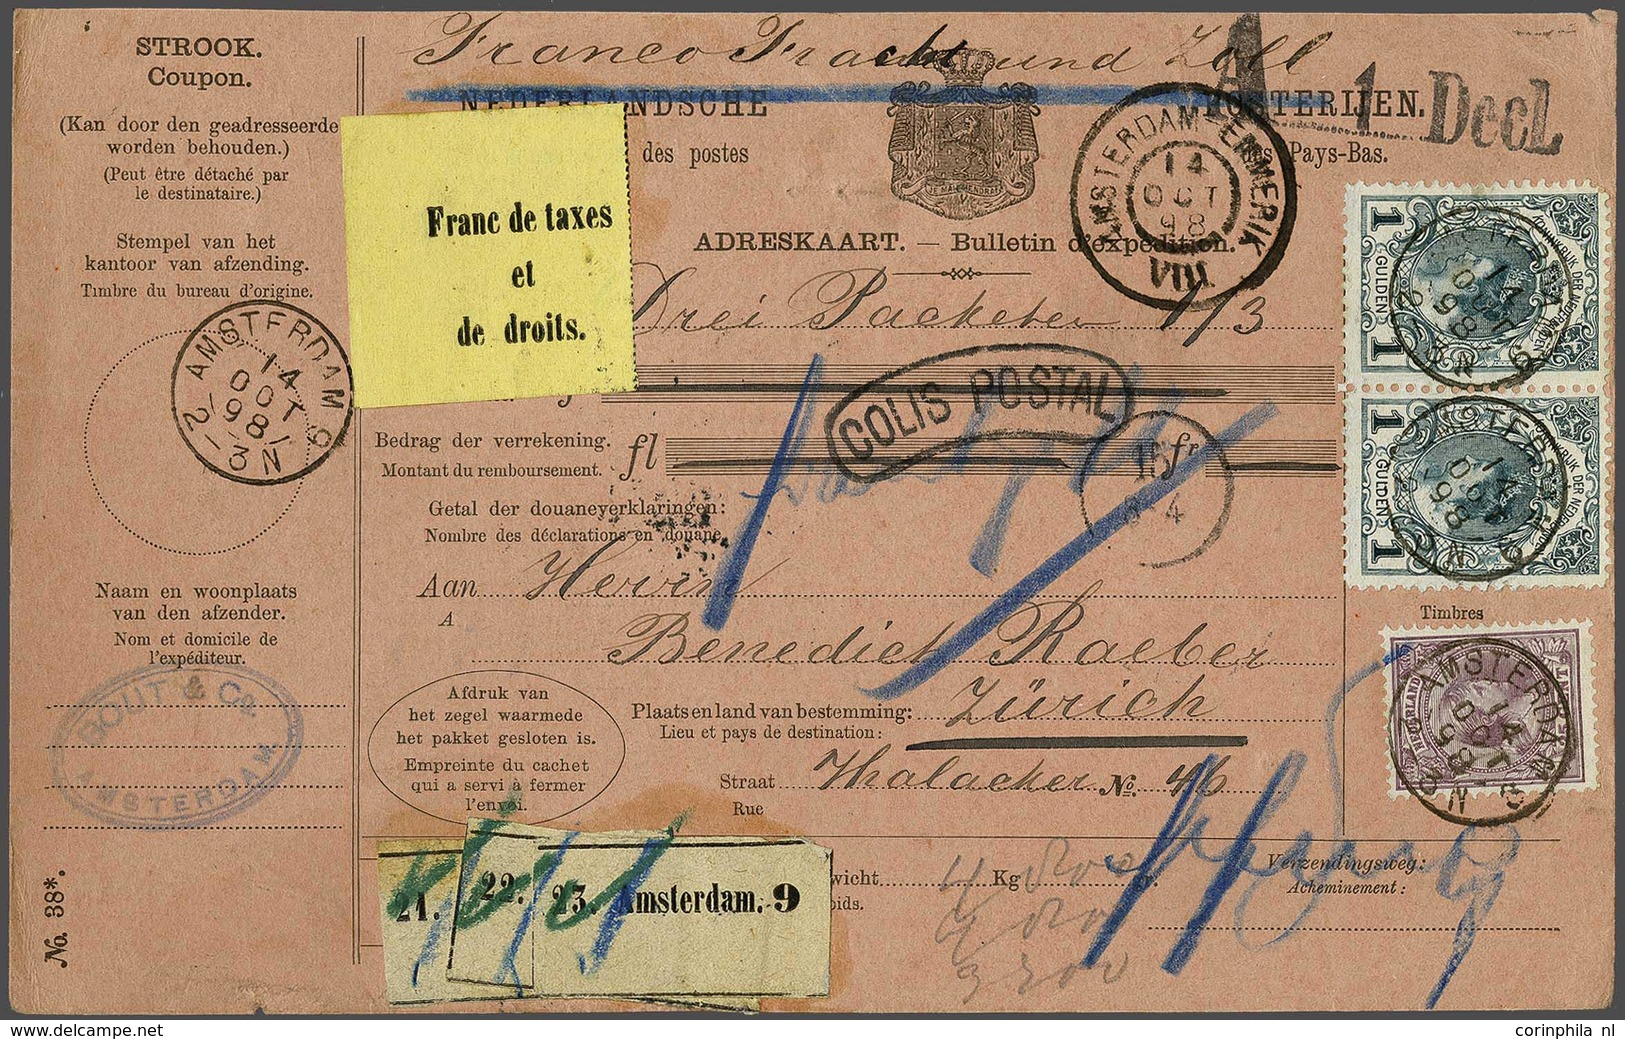 STROOK.
Coupon.
(Kan door den geadresseerde
worden behouden.)
(Peut être détaché par
le destinataire.)
Stempel van het
kantoor van afzending.
Timbre du bureau d'origine.
AMSTERDAM 9
14
OCT
98
2-3N
Naam en woonplaats
van den afzender.
Nom et domicile de
l'expéditeur.
BOUT & Co.
AMSTERDAM.
No. 38*.
Franco Fracht und Zoll
NEDERLANDSCHE POSTERIJEN.
des postes des Pays-Bas.
A 1 Decl.
JE MAINTIENDRAI
AMSTERDAM-EMMERIK
14
OCT
98
VIII
Franc de taxes
et
de droits.
ADRESKAART. — Bulletin d'expédition.
Drei Packeten 1/3
COLIS POSTAL
Bedrag der verrekening.
Montant du remboursement.
fl fr
Getal der douaneverklaringen:
Nombre des déclarations en douane
Aan Herrn
A
Benedict Raeber
Plaats en land van bestemming: Zürich
Lieu et pays de destination:
Straat Thalacker No. 46
Rue
Afdruk van
het zegel waarmede
het pakket gesloten is.
Empreinte du cachet
qui a servi à fermer
l'envoi.
21.
22.
23. Amsterdam. 9
wicht Kg gr.
oids.
Verzendingsweg:
Acheminement:
1 1
KONINKRIJK DER NEDERLANDEN
GULDEN
AMSTERDAM 9
14
OCT
98
1 1
KONINKRIJK DER NEDERLANDEN
GULDEN
AMSTERDAM 9
14
OCT
98
Timbres
NEDERLAND
AMSTERDAM
14
OCT
98
corinphila nl